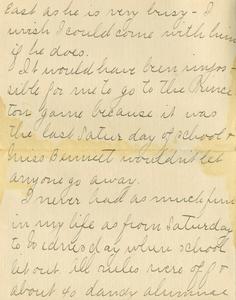 East as he is very busy - I
wish I could come with him
if he does.
I it would have been impos-
sible for me to go to the Prince
ton game because it was
the last Saturday of school &
Miss Bennett wouldn't let
anyone go away.
I never had as much fun
in my life as from Saturday
to Wednesday when school
let out. All rules were off &
about 40 dandy alumnae